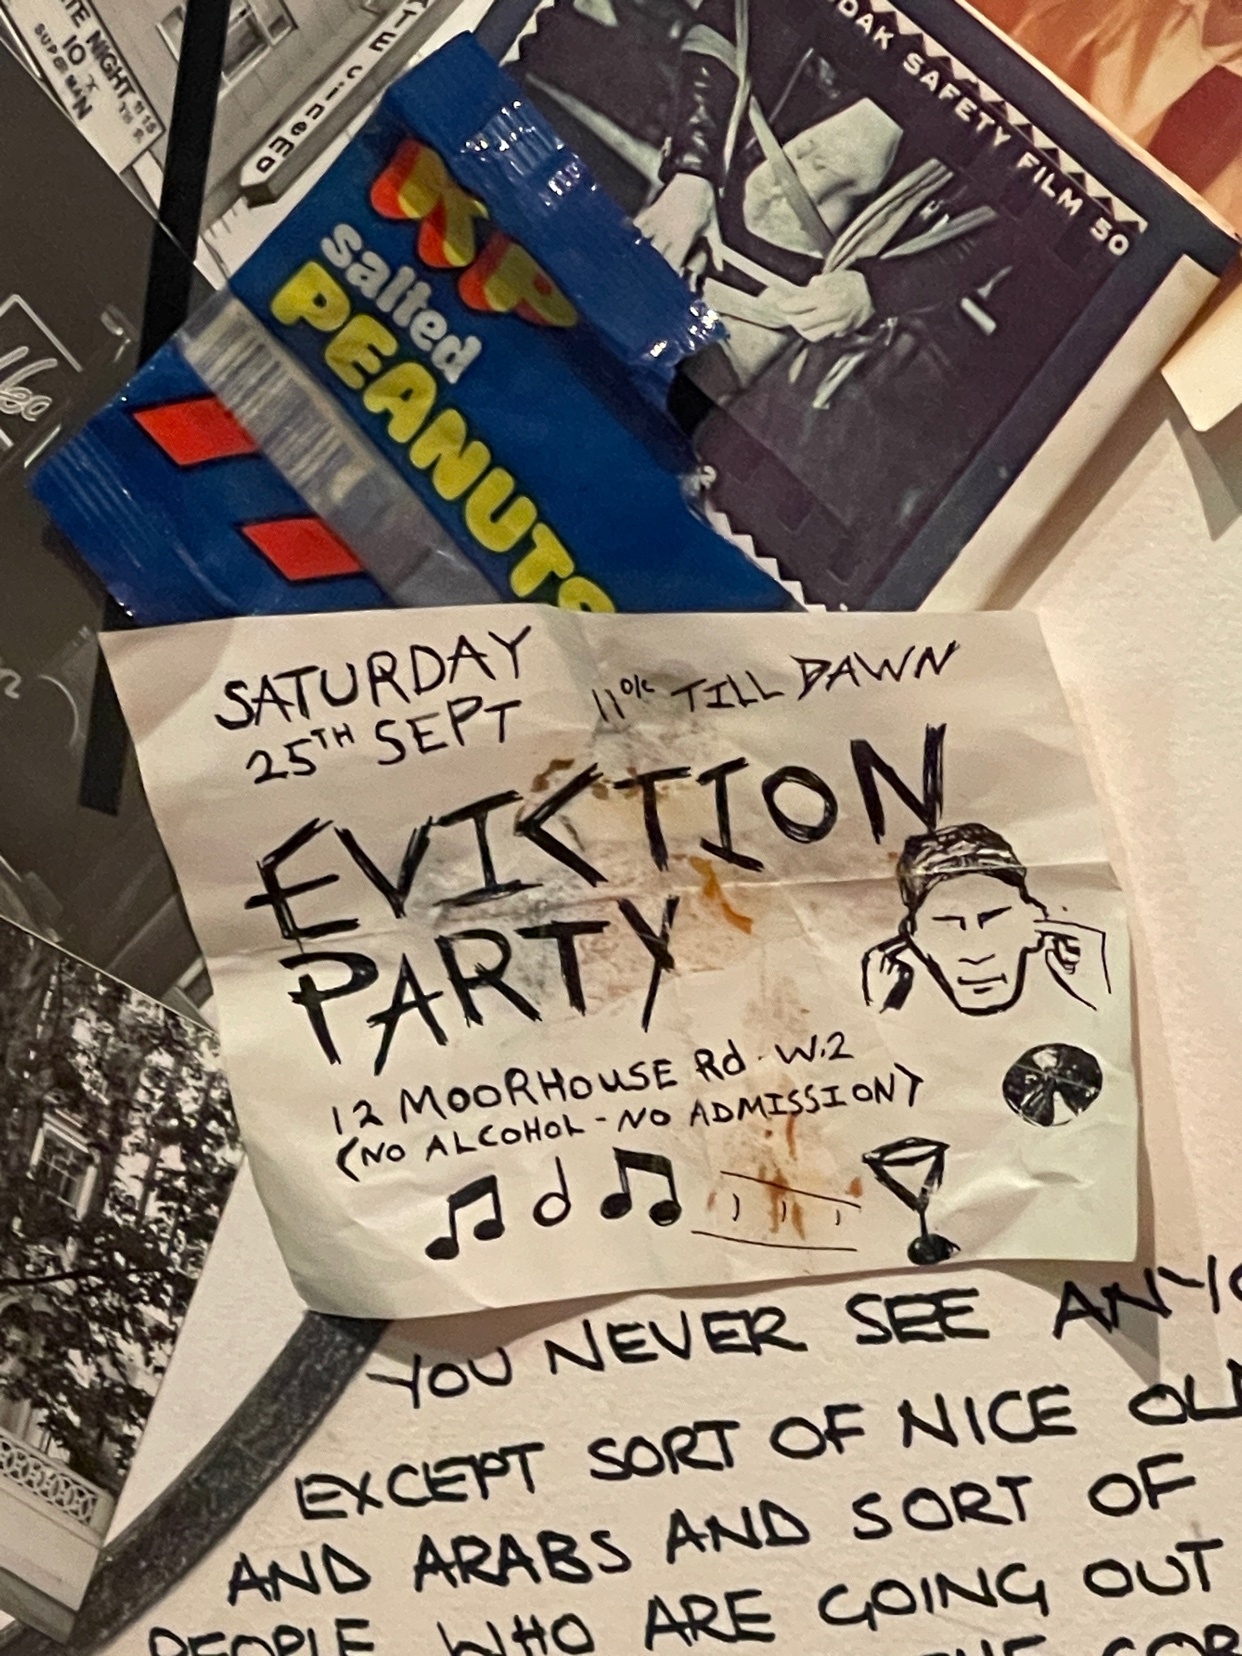 LATE NIGHT
10
SUPERMAN
cinema
KODAK SAFETY FILM 50
KP
salted
PEANUTS
SATURDAY
25TH SEPT
11 o/c TILL DAWN
EVICTION
PARTY
12 MOORHOUSE Rd. W.2
(NO ALCOHOL - NO ADMISSION)
YOU NEVER SEE
EXCEPT SORT OF NICE
AND ARABS AND SORT OF
PEOPLE WHO ARE GOING OUT